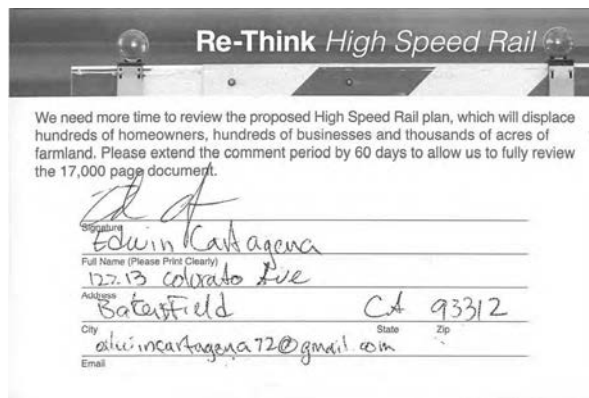 Re-Think High Speed Rail
We need more time to review the proposed High Speed Rail plan, which will displace
hundreds of homeowners, hundreds of businesses and thousands of acres of
farmland. Please extend the comment period by 60 days to allow us to fully review
the 17,000 page document.
Signature
Edwin Cartagena
Full Name (Please Print Clearly)
12213 Colorato Ave
Address
Bakersfield CA 93312
City State Zip
edwincartagena72@gmail.com
Email